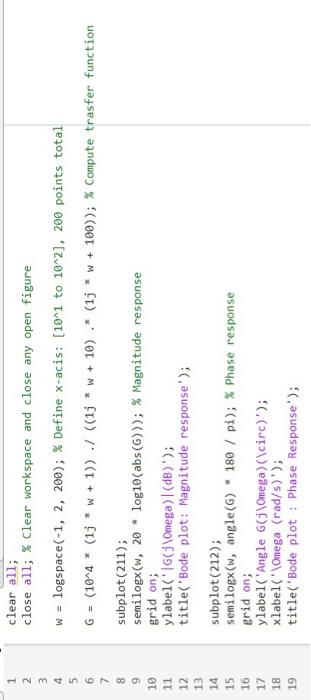 1 clear all;
2 close all; % Clear workspace and close any open figure
3
4 w = logspace(-1, 2, 200); % Define x-acis: [10^1 to 10^2], 200 points total
5
6 G = (10^4 * (1j * w + 1)) ./ ((1j * w + 10) .* (1j * w + 100)); % Compute trasfer function
7
8 subplot(211);
9 semilogx(w, 20 * log10(abs(G))); % Magnitude response
10 grid on;
11 ylabel('|G(j\Omega)|(dB)');
12 title('Bode plot: Magnitude response');
13
14 subplot(212);
15 semilogx(w, angle(G) * 180 / pi); % Phase response
16 grid on;
17 ylabel('Angle G(j\Omega)(\circ)');
18 xlabel('\Omega (rad/s)');
19 title('Bode plot : Phase Response');